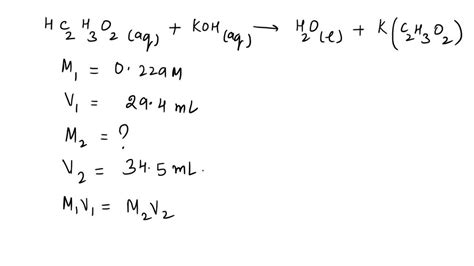 HC₂H₃O₂ (aq) + KOH (aq) ⟶ H₂O (l) + K(C₂H₃O₂)
M₁ = 0.229M
V₁ = 29.4 mL
M₂ = ?
V₂ = 34.5 mL.
M₁V₁ = M₂V₂